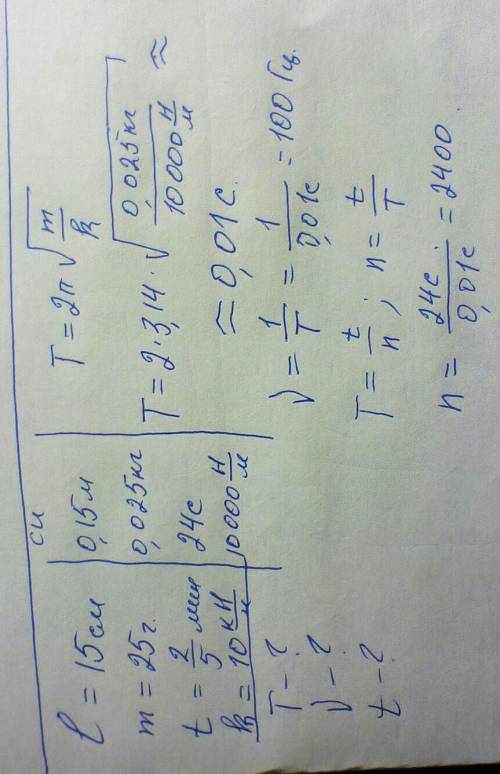 СИ
ℓ = 15 см | 0,15 м
m = 25 г. | 0,025 кг
t = 2/5 мин | 24 с
k = 10 кН/м | 10 000 Н/м
T - ?
ν - ?
t - ?
T = 2π √(m/k)
T = 2·3,14 · √(0,025 кг / 10 000 Н/м) ≈
≈ 0,01 с.
ν = 1/T = 1/0,01с = 100 Гц.
T = t/n ; n = t/T
n = 24с/0,01с = 2400.